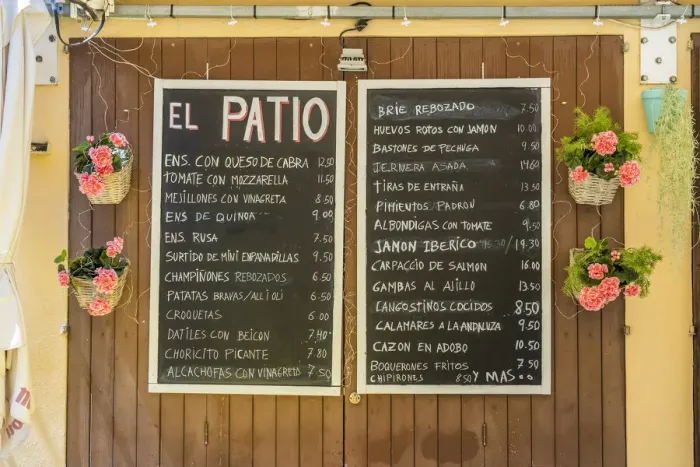 EL PATIO
ENS. CON QUESO DE CABRA 12.50
TOMATE CON MOZZARELLA 11.50
MEJILLONES CON VINAGRETA 8.50
ENS DE QUINOA 9.00
ENS. RUSA 7.50
SURTIDO DE MINI EMPANADILLAS 9.50
CHAMPIÑONES REBOZADOS 6.50
PATATAS BRAVAS/ALLIOLI 6.50
CROQUETAS 6.50
DATILES CON BEICON 7.40
CHORICITO PICANTE 7.80
ALCACHOFAS CON VINAGRETA 7.50
BRIE REBOZADO 7.50
HUEVOS ROTOS CON JAMON 10.00
BASTONES DE PECHUGA 9.50
TERNERA ASADA 14.60
TIRAS DE ENTRAÑA 13.50
PIMIENTOS PADRON 6.80
ALBONDIGAS CON TOMATE 9.50
JAMON IBERICO /19.30
CARPACCIO DE SALMON 16.00
GAMBAS AL AJILLO 13.50
LANGOSTINOS COCIDOS 8.50
CALAMARES A LA ANDALUZA 9.50
CAZON EN ADOBO 10.50
BOQUERONES FRITOS 7.50
CHIPIRONES 8.50 Y MAS...